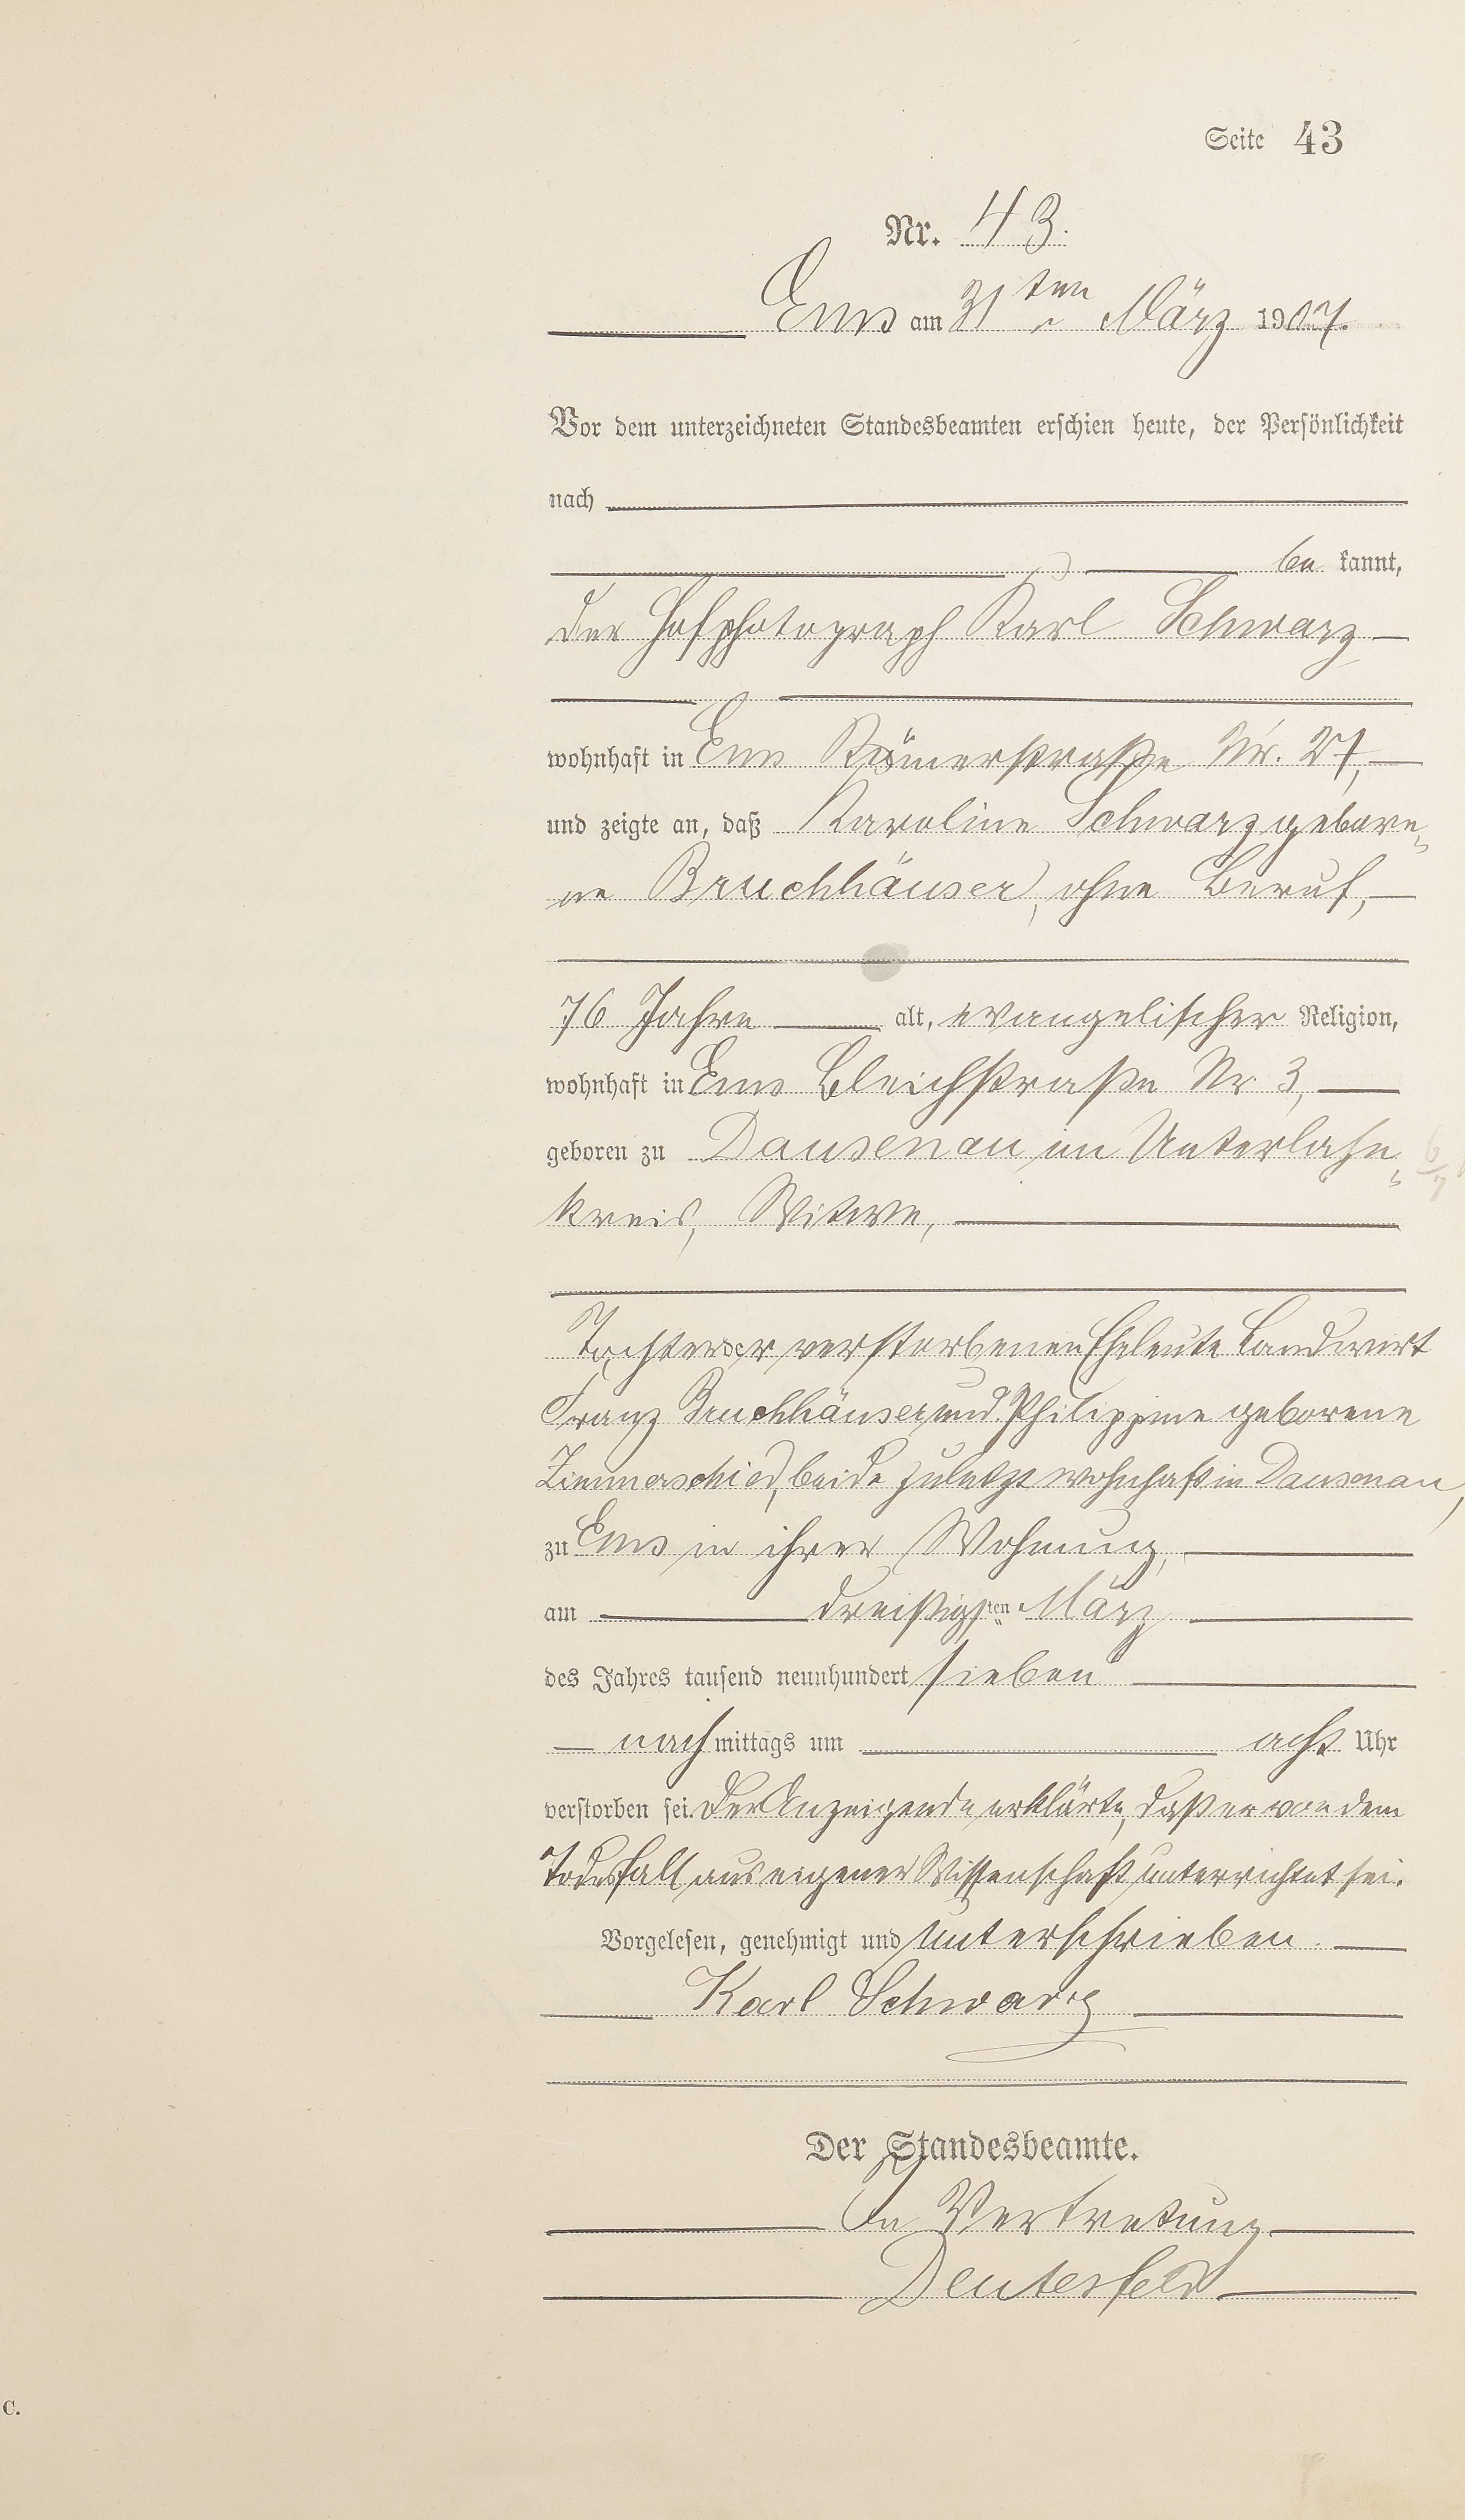 Seite 43
Nr. 43.
Ems am 31ten März 1907.
Vor dem unterzeichneten Standesbeamten erschien heute, der Persönlichkeit
nach
be kannt,
der Hofphotograph Karl Schwarz
wohnhaft in Ems Römerstraße Nr. 27,
und zeigte an, daß Karoline Schwarz gebore-
ne Bruchhäuser, ohne Beruf,
76 Jahre alt, evangelischer Religion,
wohnhaft in Ems Bleichstraße Nr. 3,
geboren zu Dausenau im Unterlahn-
kreis, Witwe,
Tochter der verstorbenen Eheleute Landwirt
Franz Bruchhäuser und Philippine geborene
Zimmerschied, beide zuletzt wohnhaft in Dausenau,
zu Ems in ihrer Wohnung,
am dreißigsten März
des Jahres tausend neunhundert sieben
nach mittags um acht Uhr
verstorben sei. Der Anzeigende erklärte, daß er von dem
Todesfall aus eigener Wissenschaft unterrichtet sei.
Vorgelesen, genehmigt und unterschrieben.
Karl Schwarz
Der Standesbeamte.
In Vertretung
C.